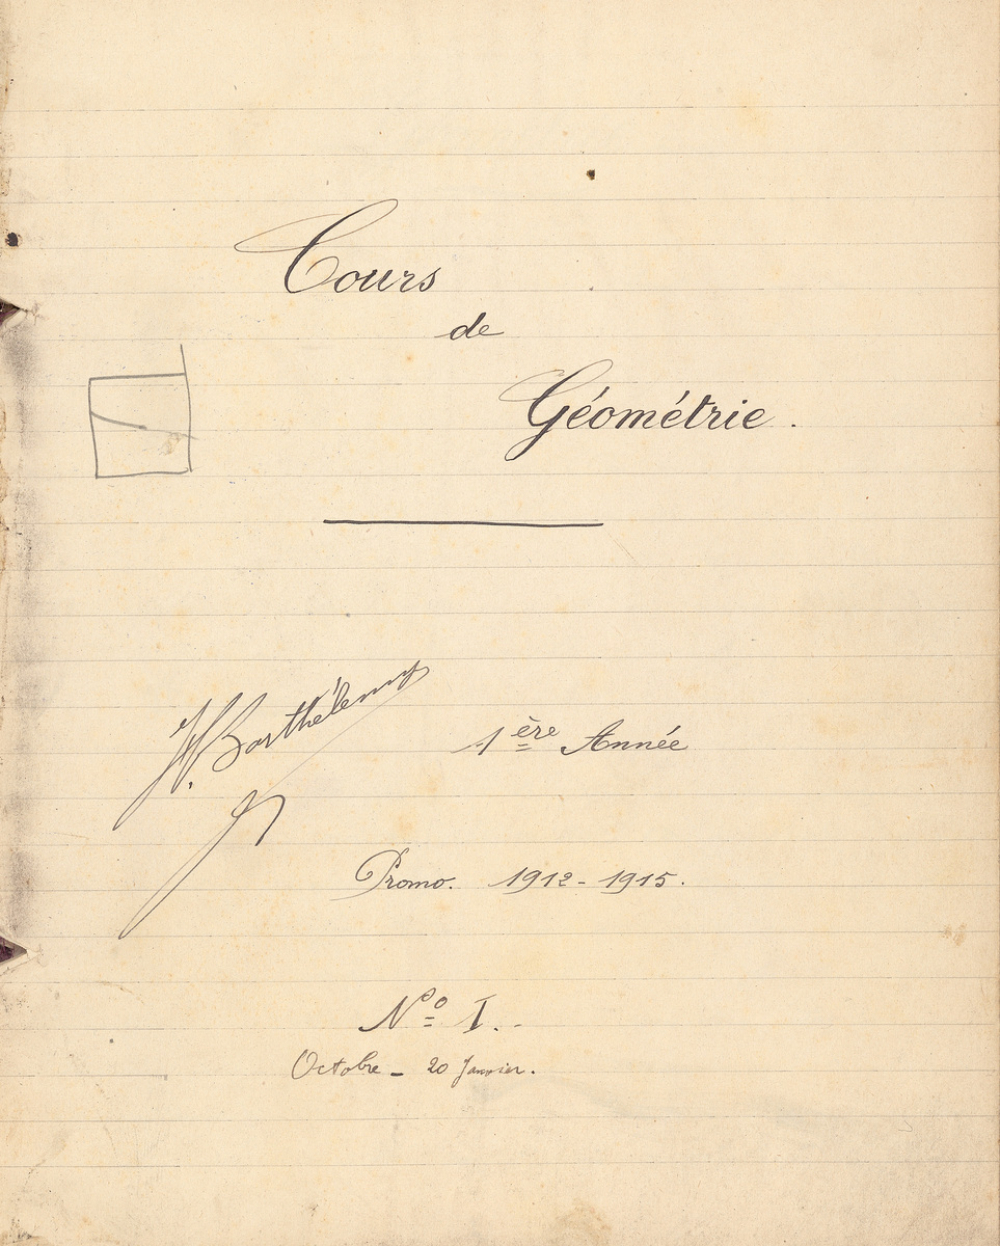 Cours
de
Géométrie.
Barthélemy
1ère Année
Promo. 1912-1915.
No I.
Octobre - 20 Janvier.